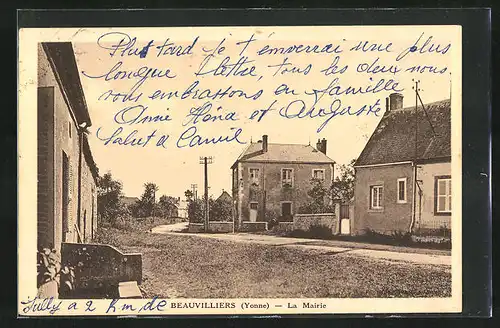 Plus tard Je t'enverrai une plus
longue lettre, tous les deux nous
vous embrassons en famille
Anne Héna et Auguste
Salut a Camil
Jully a 2 Km de BEAUVILLIERS (Yonne) — La Mairie